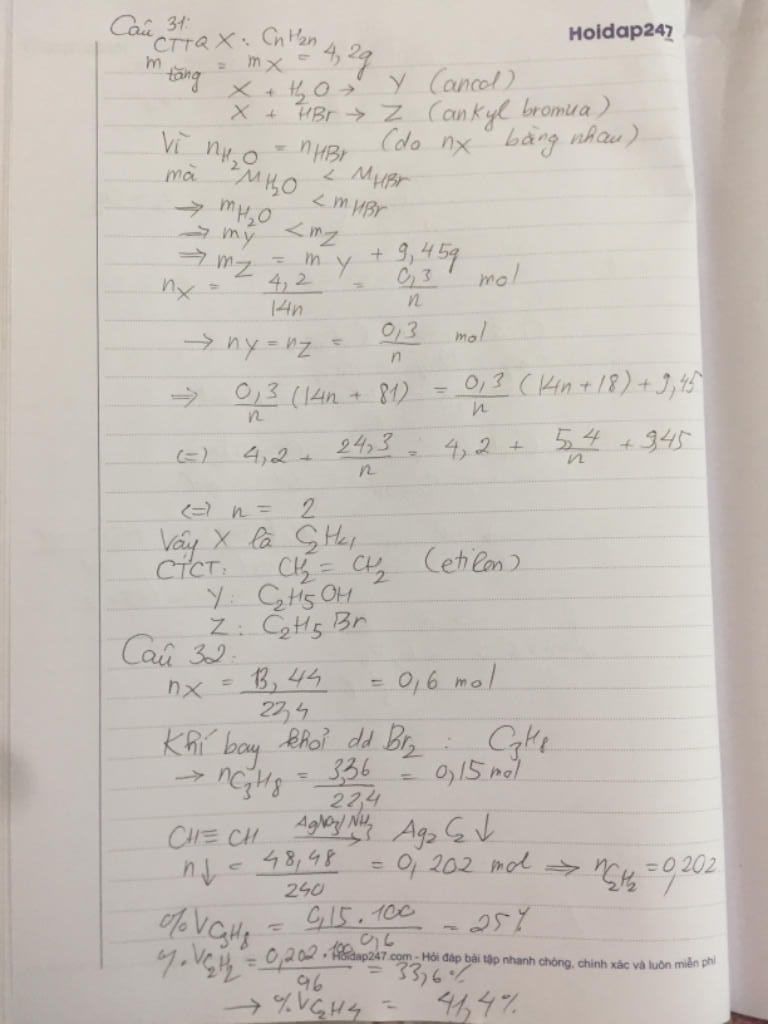 Hoidap247
Câu 31:
CTTQ X: CnH2n
m tăng = mX = 4,2g
X + H2O → Y (ancol)
X + HBr → Z (ankyl bromua)
Vì nH2O = nHBr (do nX bằng nhau)
mà MH2O < MHBr
→ mH2O < mHBr
⇒ mY < mZ
⇒ mZ = mY + 9,45g
nX = 4,2/14n = 0,3/n mol
→ nY = nZ = 0,3/n mol
⇒ 0,3/n (14n + 81) = 0,3/n (14n + 18) + 9,45
(=) 4,2 + 24,3/n = 4,2 + 5,4/n + 9,45
(=) n = 2
Vậy X là C2H4
CTCT: CH2 = CH2 (etilen)
Y: C2H5OH
Z: C2H5Br
Câu 32:
nX = 13,44/22,4 = 0,6 mol
Khí bay khỏi dd Br2 : C3H8
→ nC3H8 = 3,36/22,4 = 0,15 mol
CH≡CH AgNO3/NH3→ Ag2C2↓
n↓ = 48,48/240 = 0,202 mol ⇒ nC2H2 = 0,202
%VC3H8 = 0,15.100/0,6 = 25%
%VC2H2 = 0,202.100/0,6 = 33,6%
Hoidap247.com - Hỏi đáp bài tập nhanh chóng, chính xác và luôn miễn phí
→ %VC2H4 = 41,4%